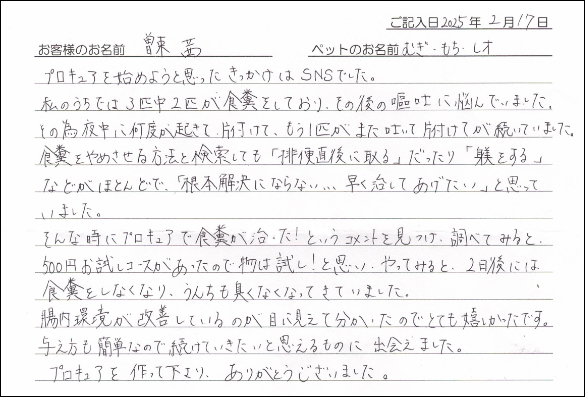 ご記入日2025年2月17日
お客様のお名前 曽東 茜 ペットのお名前 むぎ・もち・レオ
プロキュアを始めようと思ったきっかけはSNSでした。
私のうちでは3匹中2匹が食糞をしており、その後の嘔吐に悩んでいました。
その為夜中に何度か起きて、片付けて、もう1匹がまた吐いて片付けてが続いていました。
食糞をやめさせる方法と検索しても「排便直後に取る」だったり「躾をする」
などがほとんどで、「根本解決にならない…、早く治してあげたい」と思って
いました。
そんな時にプロキュアで食糞が治った!というコメントを見つけ、調べてみると、
500円お試しコースがあったので物は試し!と思い、やってみると、2日後には
食糞をしなくなり、うんちも臭くなくなってきていました。
腸内環境が改善しているのが目に見えて分かったのでとても嬉しかったです。
与え方も簡単なので続けていきたいと思えるものに出会えました。
プロキュアを作って下さり、ありがとうございました。